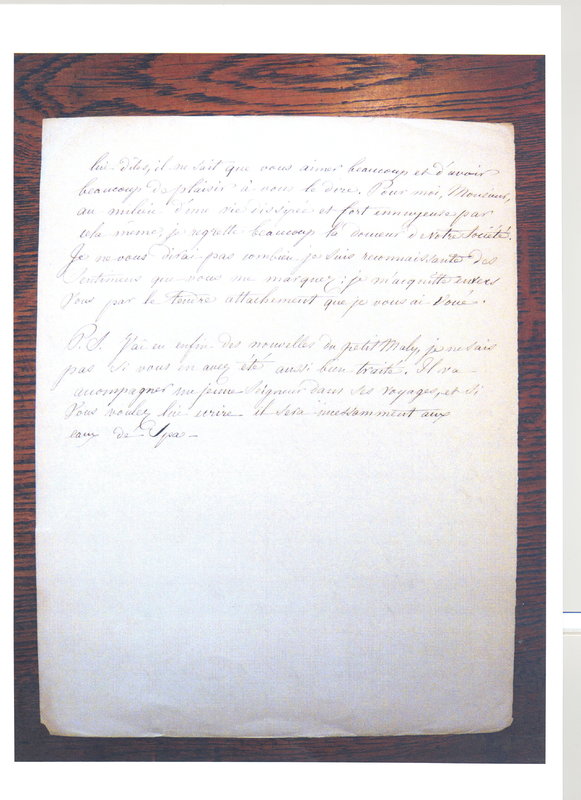 lui dites, il ne sait que vous aimer beaucoup et d'avoir
beaucoup de plaisir à vous le dire. Pour moi, Monsieur,
au milieu d'une vie dissipée et fort ennuyeuse par
cela même, je regrette beaucoup la douceur de votre Société.
Je ne vous dirai pas combien je suis reconnaissante des
Sentimens que vous me marquez; je m'acquitte envers
Vous par le tendre attachement que je vous ai voué.
P.S. J'ai eu enfin des nouvelles du petit Maly, je ne sais
pas si vous en avez été aussi bien traité. Il va
acompagner un jeune Seigneur dans ses voyages, et si
Vous voulez lui ecrire il sera incessamment aux
eaux de Spa